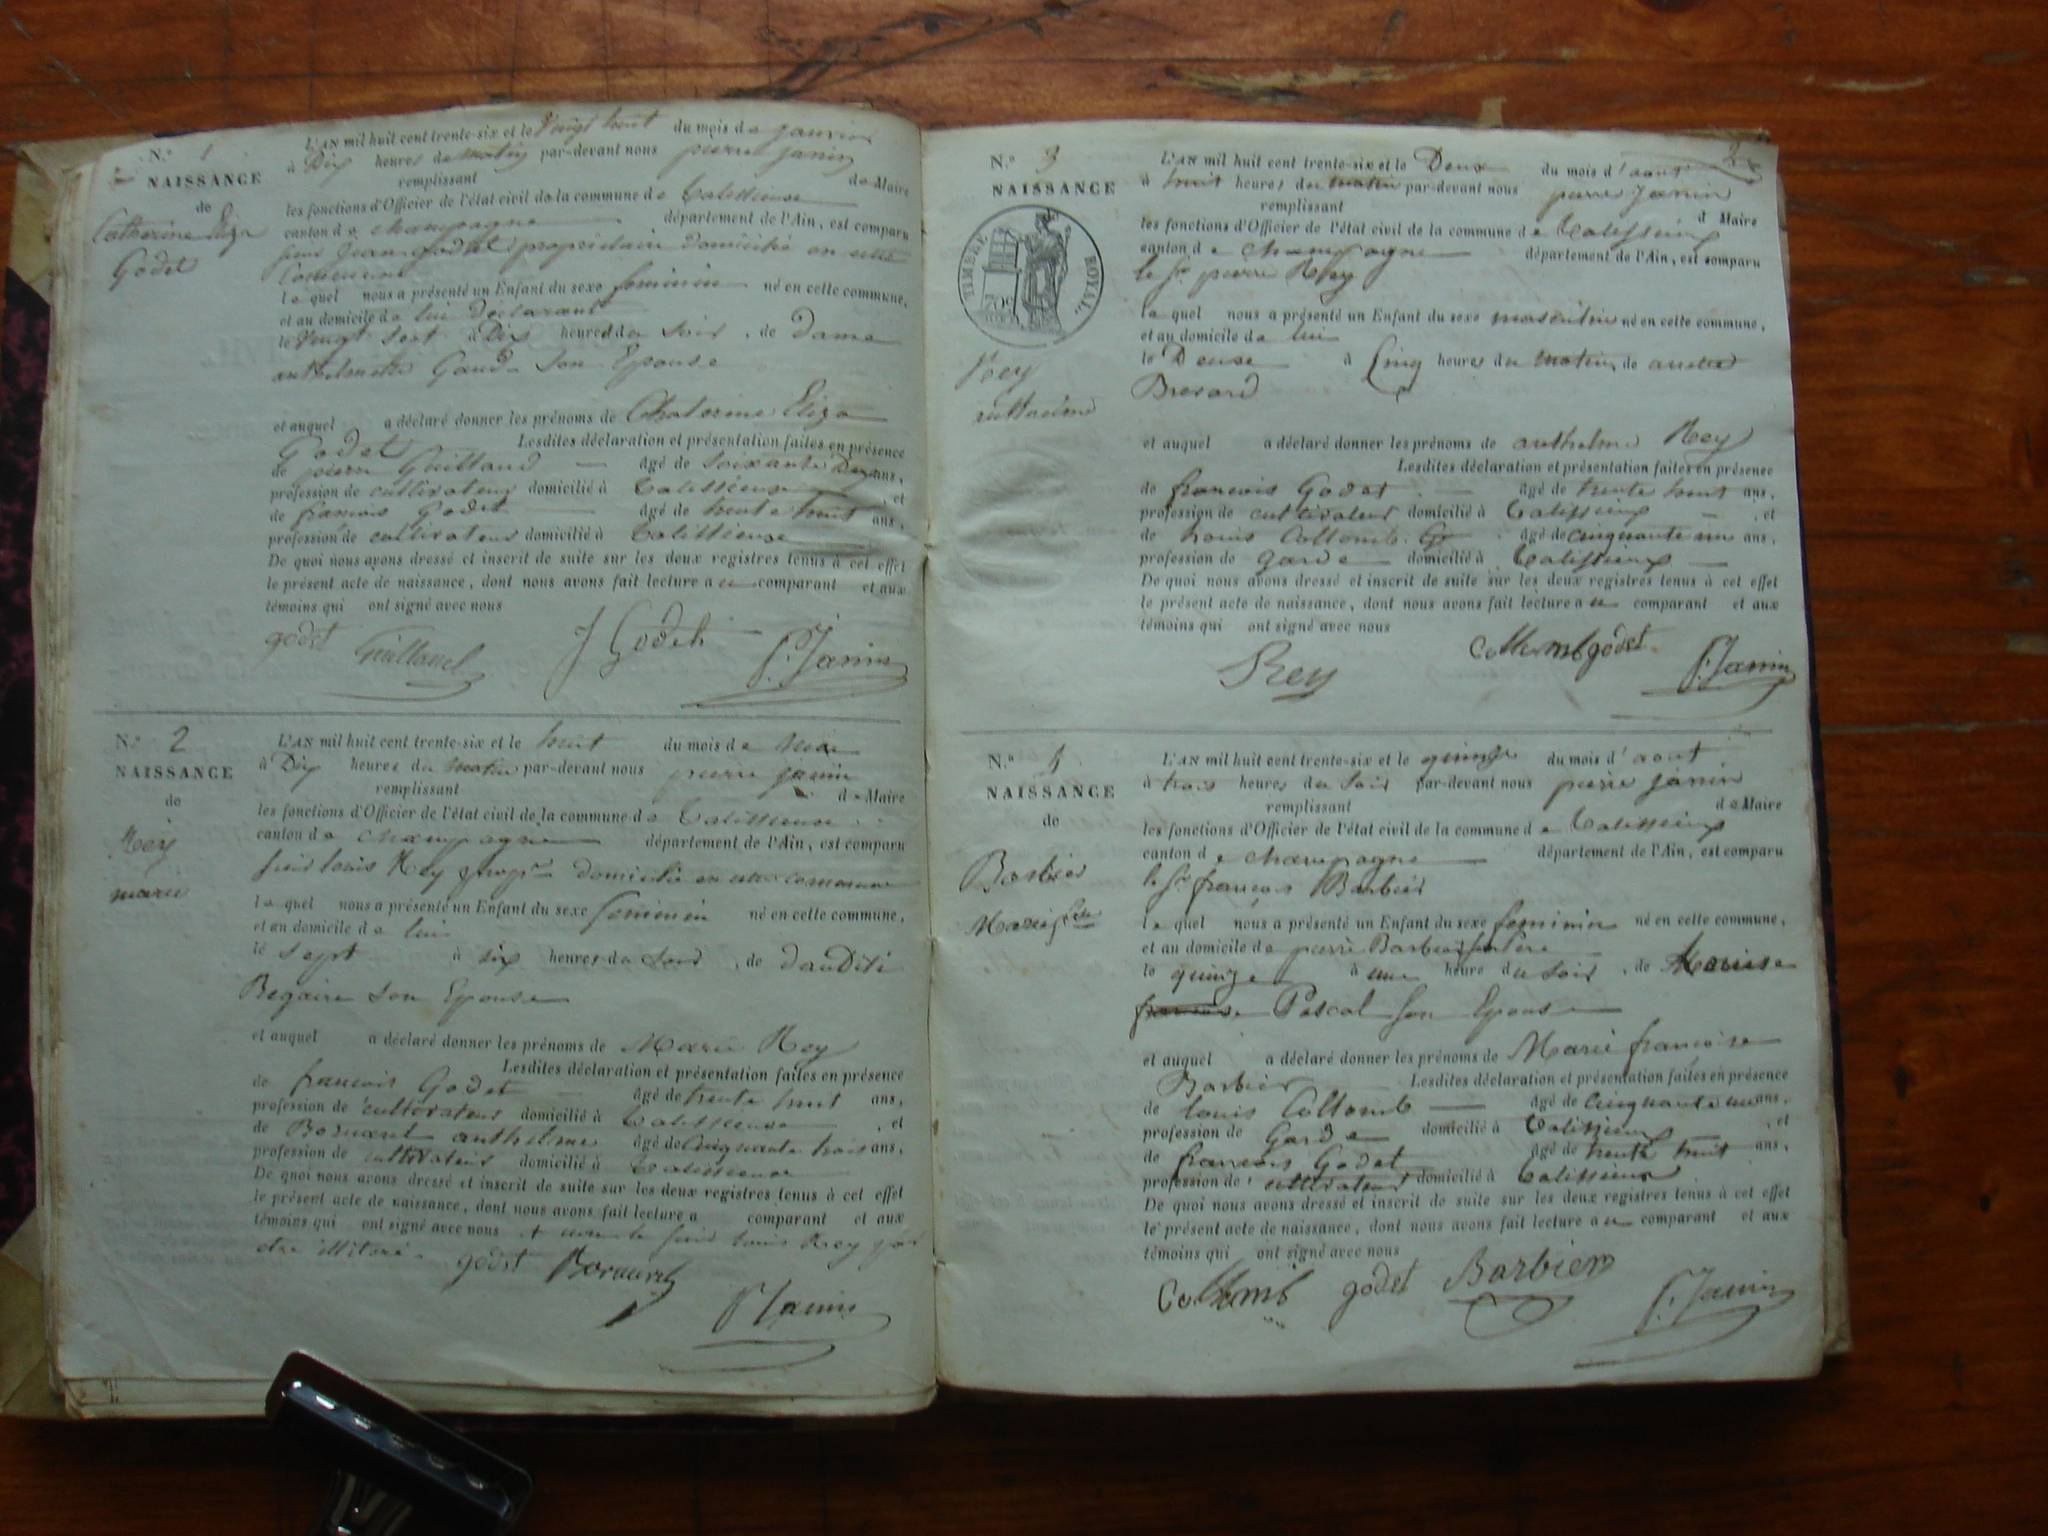 N.º 1
NAISSANCE
de
Catherine Eliza
Godet
L'AN mil huit cent trente-six et le Vingt huit du mois de janvier
à Dix heures du matin par-devant nous pierre janin
remplissant de Maire
les fonctions d'Officier de l'état civil de la commune de Talissieux
canton de champagne département de l'Ain, est comparu
jean godet propriétaire domicilié en cette
Commune
le quel nous a présenté un Enfant du sexe feminin né en cette commune,
et au domicile de lui declarant
le Vingt sept à Dix heures du soir, de Dame
anthelmette Gaud son Epouse
et auquel a déclaré donner les prénoms de Chaterine Eliza
Godet Lesdites déclaration et présentation faites en présence
de pierre Guilland agé de soixante ans,
profession de cultivateur domicilié à Talissieux, et
de francois Godet agé de trente huit ans,
profession de cultivateur domicilié à Talissieux
De quoi nous avons dressé et inscrit de suite sur les deux registres tenus à cet effet
le présent acte de naissance, dont nous avons fait lecture au comparant et aux
témoins qui ont signé avec nous
godet Guilland J Godet P. Janin
N.º 2
NAISSANCE
de
Rey
marie
L'AN mil huit cent trente-six et le huit du mois de
à Dix heures du matin par-devant nous pierre janin
remplissant de Maire
les fonctions d'Officier de l'état civil de la commune de Talissieux
canton de champagne département de l'Ain, est comparu
louis Rey propre domicilié en cette commune
le quel nous a présenté un Enfant du sexe feminin né en cette commune,
et au domicile de lui
le sept à six heures du soir, de
Begaire son Epouse
et auquel a déclaré donner les prénoms de Marie Rey
Lesdites déclaration et présentation faites en présence
de francois Godet agé de trente huit ans,
profession de cultivateur domicilié à Talissieux, et
de anthelme agé de cinquante trois ans,
profession de cultivateur domicilié à Talissieux
De quoi nous avons dressé et inscrit de suite sur les deux registres tenus à cet effet
le présent acte de naissance, dont nous avons fait lecture a comparant et aux
témoins qui ont signé avec nous louis Rey
etre
godet P Janin
N.º 3
NAISSANCE
TIMBRE ROYAL.
Rey
anthelme
L'AN mil huit cent trente-six et le Deux du mois d'aout
à huit heures du matin par-devant nous pierre janin
remplissant d Maire
les fonctions d'Officier de l'état civil de la commune de Talissieux
canton de champagne département de l'Ain, est comparu
le Sr. pierre Rey
le quel nous a présenté un Enfant du sexe masculin né en cette commune,
et au domicile de lui
le Deuxe à Cinq heures du matin, de
Brevard
et auquel a déclaré donner les prénoms de anthelme Rey
Lesdites déclaration et présentation faites en présence
de francois Godet agé de trente huit ans,
profession de cultivateur domicilié à Talissieux, et
de Louis Collomb agé de cinquante un ans,
profession de garde domicilié à Talissieux
De quoi nous avons dressé et inscrit de suite sur les deux registres tenus à cet effet
le présent acte de naissance, dont nous avons fait lecture au comparant et aux
témoins qui ont signé avec nous
Rey Collomb godet P. Janin
N.º 4
NAISSANCE
de
Barbier
Marie
L'AN mil huit cent trente-six et le quinze du mois d'aout
à trois heures du soir par-devant nous pierre janin
remplissant de Maire
les fonctions d'Officier de l'état civil de la commune de Talissieux
canton de champagne département de l'Ain, est comparu
le Sr. francois Barbier
le quel nous a présenté un Enfant du sexe feminin né en cette commune,
et au domicile de pierre Barbier son Père
le quinze à une heure du soir, de
Pascal son Epouse
et auquel a déclaré donner les prénoms de Marie francoise
Barbier Lesdites déclaration et présentation faites en présence
de louis Collomb agé de cinquante un ans,
profession de Garde domicilié à Talissieux, et
de francois Godet agé de trente huit ans,
profession de cultivateur domicilié à Talissieux
De quoi nous avons dressé et inscrit de suite sur les deux registres tenus à cet effet
le présent acte de naissance, dont nous avons fait lecture au comparant et aux
témoins qui ont signé avec nous
Collomb godet Barbier P. Janin